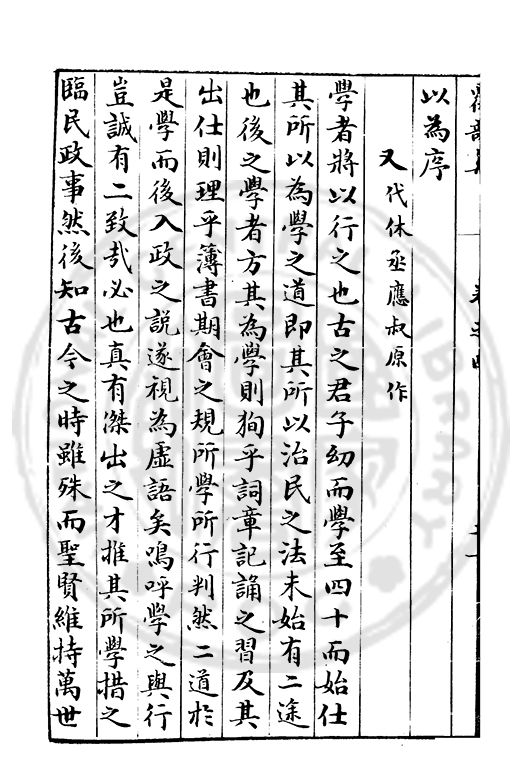 以為序
又代休丞應叔原作
學者將以行之也古之君子幼而學至四十而始仕
其所以為學之道即其所以治民之法未始有二途
也後之學者方其為學則狥乎詞章記誦之習及其
出仕則理乎簿書期會之規所學所行判然二道於
是學而後入政之說遂視為虛語矣嗚呼學之與行
豈誠有二致哉必也真有傑出之才推其所學措之
臨民政事然後知古今之時雖殊而聖賢維持萬世